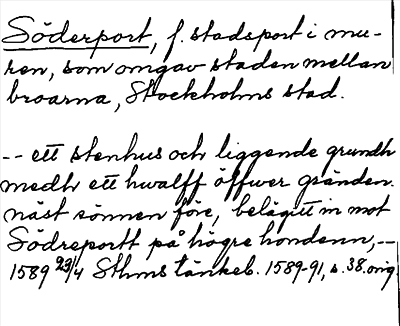 Söderport, f. stadsport i mu-
ren, som omgav staden mellan
broarna, Stockholms stad.
-- ett stenhus och liggende grundh
medh ett hwalff öffwer gränden.
näst sönnen före, belägitt in mot
Södreportt på högre hondenn, --
1589 23/4 Sthms tänkeb. 1589-91, s. 38. orig.